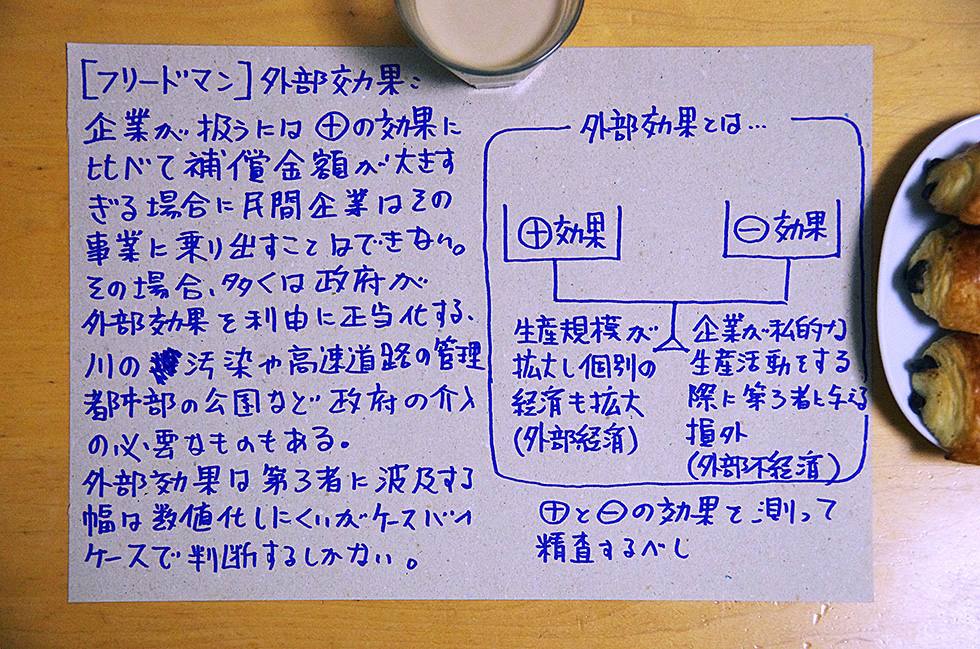 [フリードマン]外部効果:
企業が扱うには⊕の効果に
比べて補償金額が大きす
ぎる場合に民間企業はその
事業に乗り出すことはできない。
その場合、多くは政府が
外部効果を利由に正当化する、
川の 汚染や高速道路の管理
都市部の公園など政府の介入
の必要なものもある。
外部効果は第3者に波及する
幅は数値化しにくいがケースバイ
ケースで判断するしかない。
外部効果とは…
⊕効果
⊖効果
生産規模が
拡大し個別の
経済も拡大
(外部経済)
企業が私的な
生産活動をする
際に第3者に与える
損外
(外部不経済)
⊕と⊖の効果を測って
精査するべし